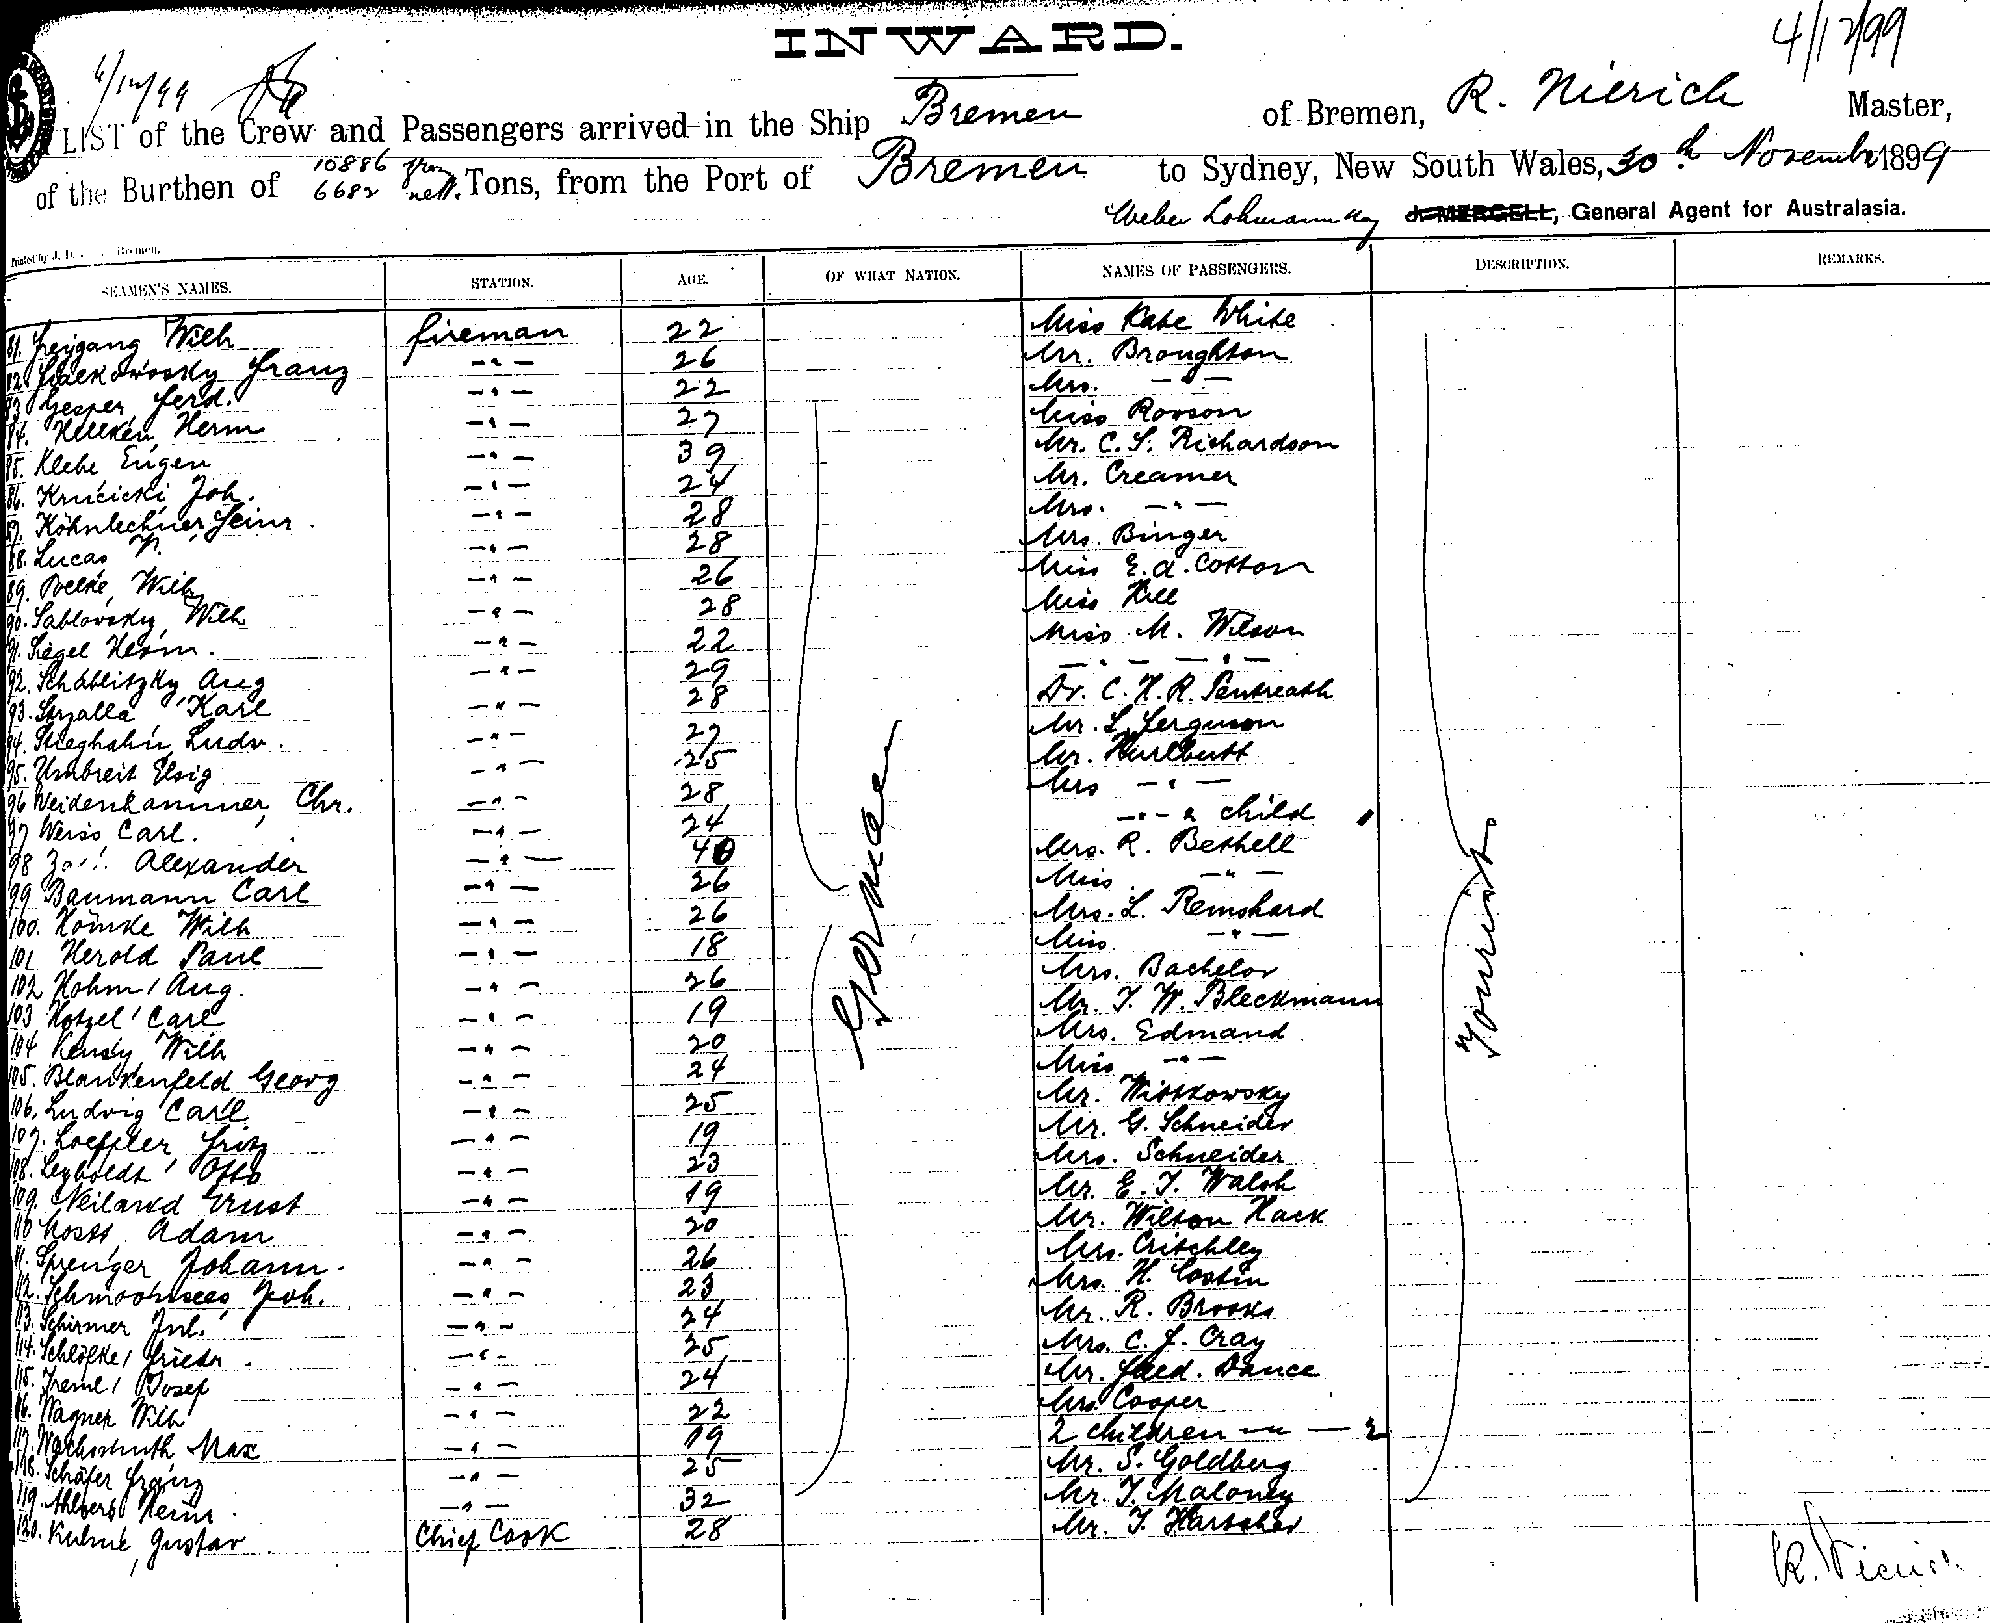 INWARD.
4/12/99
6/12/99
LIST of the Crew and Passengers arrived in the Ship Bremen of Bremen, R. Nierich Master,
of the Burthen of 10886 gron 6682 nett. Tons, from the Port of Bremen to Sydney, New South Wales, 30th November 1899
Weber Lohmann &Coy J. MERGELL, General Agent for Australasia.
Printed by J. Bremen.
SEAMEN'S NAMES. STATION. AGE. OF WHAT NATION. NAMES OF PASSENGERS. DESCRIPTION. REMARKS.
81. Freigang Wilh fireman 22 Miss Kate White
82. Franz -"- 26 Mr. Broughton
83. Gesper, Ferd. -"- 22 Mrs. -"-
84. Herm -"- 27 Miss Rowson
85. Klebe Eugen -"- 39 Mr. C. S. Richardson
86. Krucicki, Joh. -"- 24 Mr. Creamer
87. Köhnlechner, Heinr. -"- 28 Mrs. -"-
88. Lucas P. -"- 28 Mrs. Binger
89. Poelke, Wilh -"- 26 Miss E. A. Cotton
90. Sablowsky, Wilh -"- 28 Miss Hill
91. Siegel Herm. -"- 22 Miss M. Wilson
92. Schablitzky, Aug -"- 29 -"- -"-
93. Stryalla Karl -"- 28 Dr. C. H. R. Pentreath
94. Stieghahn, Ludw. -"- 27 Mr. L. Ferguson
95. Umbreit Elsig -"- 25 Mr. Hurlbutt
96 Weidenhammer, Chr. -"- 28 Mrs -"-
97 Weiss Carl. -"- 24 -"- " child 1
98 Alexander -"- 40 Mrs. R. Bethell
99 Baumann Carl -"- 26 Miss -"-
100. Hömke Wilh -"- 26 Mrs. L. Remshard
101 Herold Paul -"- 18 Miss -"-
102 Hohm, Aug. -"- 26 Mrs. Bachelor
103 Hotzel, Carl -"- 19 Mr. T. W. Bleckmann
104 Wilh -"- 20 Mrs. Edmand
105. Blankenfeld Georg -"- 24 Miss -"-
106. Ludvig Carl -"- 25 Mr. Wittkowsky
107. Loeffler, Fritz -"- 19 Mr. G. Schneider
108. Leyboldt, Otto -"- 23 Mrs. Schneider
109. Neiland Ernst -"- 19 Mr. E. T. Walsh
110 Adam -"- 20 Mr. Wilton Hack
111. Sprenger Johann. -"- 26 Mrs. Critchley
112. Joh. -"- 23 Mrs. H. Costin
113. Schirmer Jul. -"- 24 Mr. R. Brooks
114. Schlölke, Friedr. -"- 25 Mrs. C. J. Cray
115. Treml, Josef -"- 24 Mr. Fred. Dance
116. Wagner Wilh -"- 22 Mrs Cooper
117. Wachsmuth Max -"- 19 2 children -"- 2
118. Schäfer Franz -"- 25 Mr. S. Goldberg
119. Ahlvers Heinr. -"- 32 Mr. T. Maloney
120. Kuhne, Gustav Chief Cook 28 Mr. T.
German
Tourists